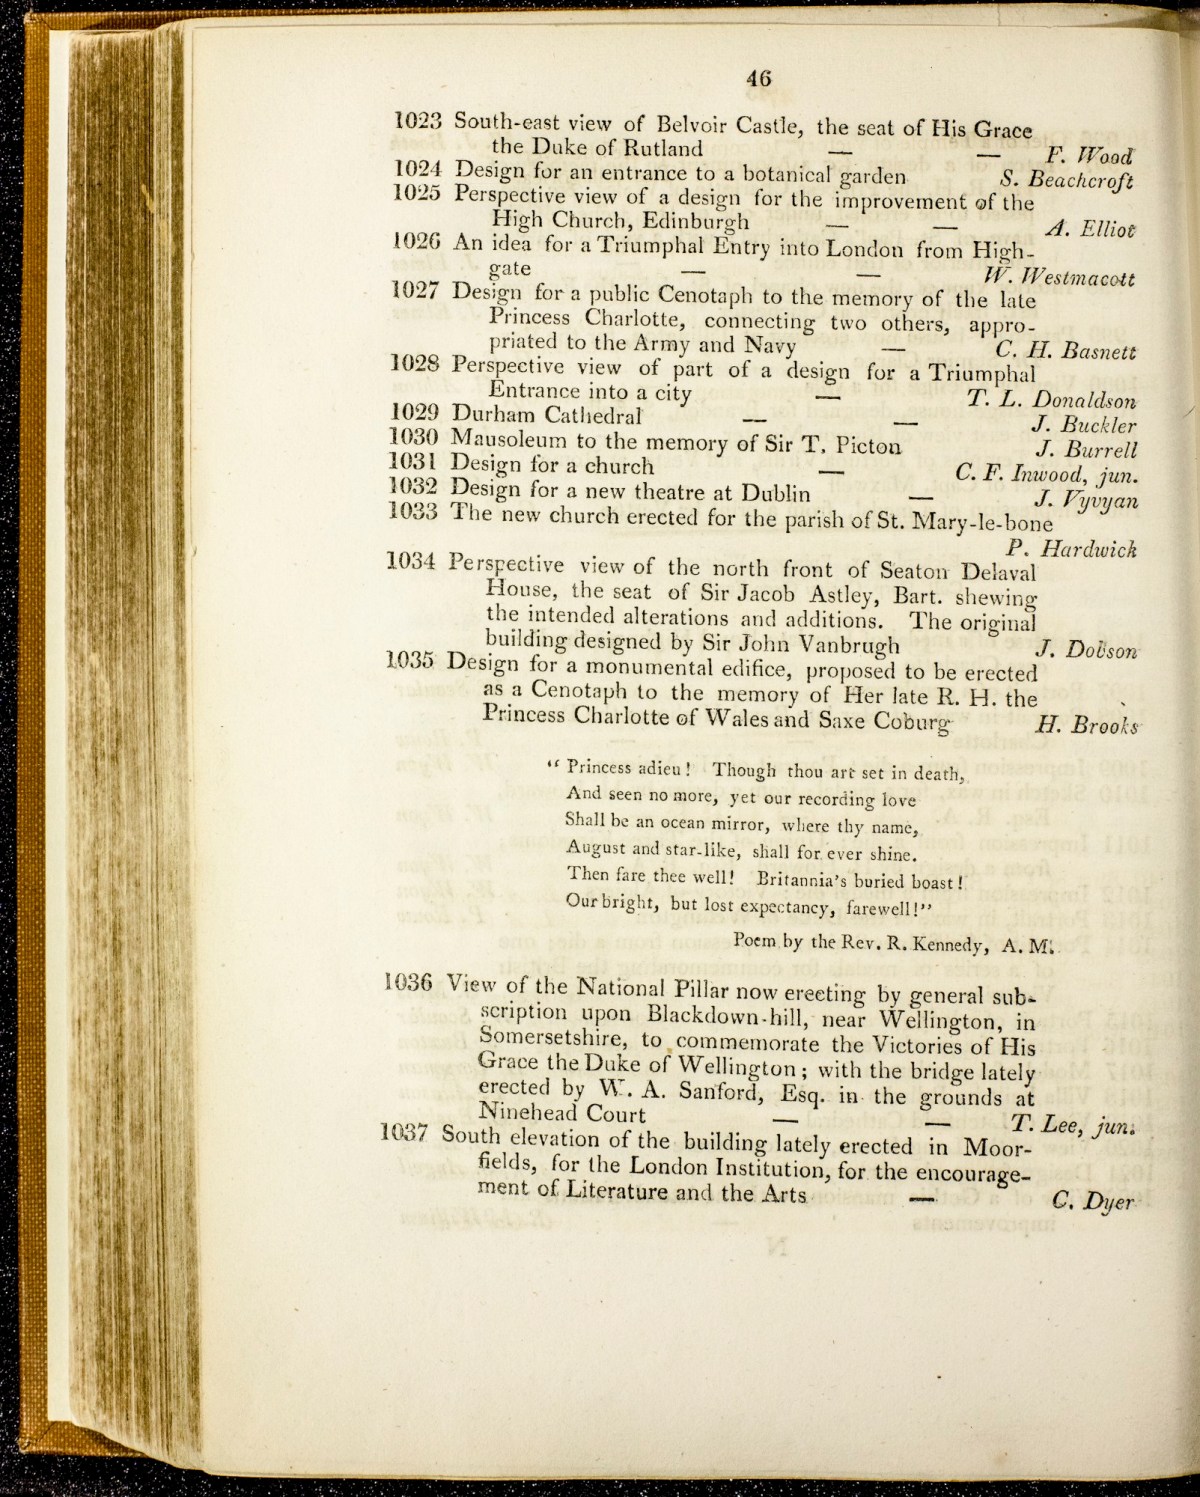 46
1023 South-east view of Belvoir Castle, the seat of His Grace
the Duke of Rutland — — F. Wood
1024 Design for an entrance to a botanical garden S. Beachcroft
1025 Perspective view of a design for the improvement of the
High Church, Edinburgh — — A. Elliot
1026 An idea for a Triumphal Entry into London from High-
gate — — W. Westmacott
1027 Design for a public Cenotaph to the memory of the late
Princess Charlotte, connecting two others, appro-
priated to the Army and Navy — C. H. Basnett
1028 Perspective view of part of a design for a Triumphal
Entrance into a city — T. L. Donaldson
1029 Durham Cathedral — — J. Buckler
1030 Mausoleum to the memory of Sir T. Picton J. Burrell
1031 Design for a church — C. F. Inwood, jun.
1032 Design for a new theatre at Dublin — J. Vyvyan
1033 The new church erected for the parish of St. Mary-le-bone
P. Hardwick
1034 Perspective view of the north front of Seaton Delaval
House, the seat of Sir Jacob Astley, Bart. shewing
the intended alterations and additions. The original
building designed by Sir John Vanbrugh J. Dobson
1035 Design for a monumental edifice, proposed to be erected
as a Cenotaph to the memory of Her late R. H. the
Princess Charlotte of Wales and Saxe Coburg H. Brooks
“ Princess adieu! Though thou art set in death,
And seen no more, yet our recording love
Shall be an ocean mirror, where thy name,
August and star-like, shall for ever shine.
Then fare thee well! Britannia's buried boast!
Our bright, but lost expectancy, farewell!”
Poem by the Rev. R. Kennedy, A. M.
1036 View of the National Pillar now erecting by general sub-
scription upon Blackdown-hill, near Wellington, in
Somersetshire, to commemorate the Victories of His
Grace the Duke of Wellington; with the bridge lately
erected by W. A. Sanford, Esq. in the grounds at
Ninehead Court — — T. Lee, jun.
1037 South elevation of the building lately erected in Moor-
fields, for the London Institution, for the encourage-
ment of Literature and the Arts — C. Dyer